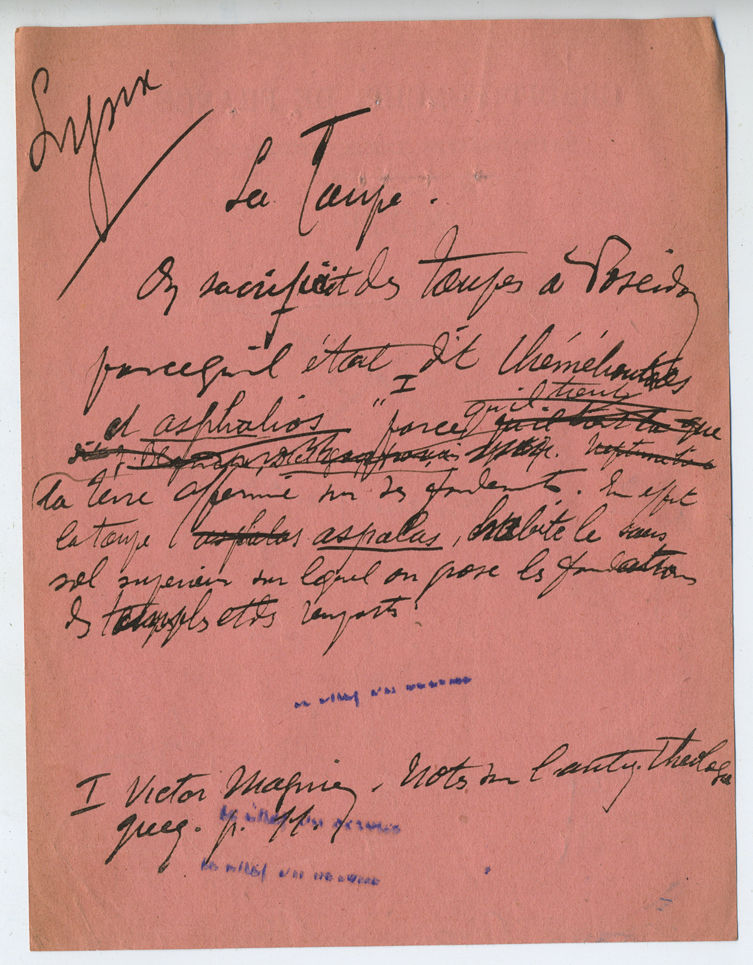 Lynx
La Taupe.
On sacrifiait des taupes à Poseidon
parcequ'il était dit théméliouchos
et asphalios " I parce qu'il tient
que
la terre affermie sur ses fondements. En effet
la taupe aspalas, habite le sous
sol superieur sur lequel on pose les fondations
des temples et des remparts
I Victor Magnien. Notes sur l'antiq. theologie
grecq. p.